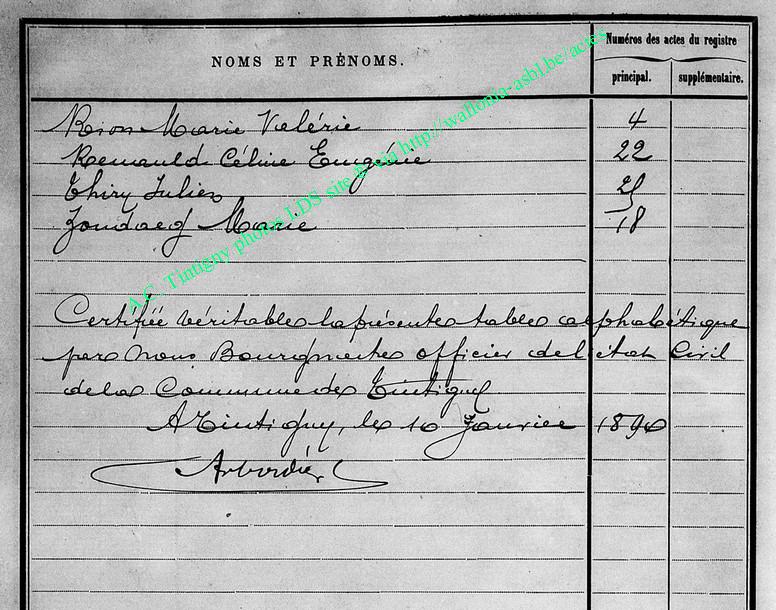 NOMS ET PRÉNOMS.
Numéros des actes du registre
principal. supplémentaire.
Rion Marie Valérie 4
Renauld Céline Eugénie 22
Thiry Jules
Marie 18
Certifiée véritable la présente table alphabétique
par Nous Bourgmestre officier de l'état Civil
de la Commune de Tintigny
A Tintigny, le 10 Janvier 1890
A.C. Tintigny photos LDS site via http://wallonia-asbl.be/actes